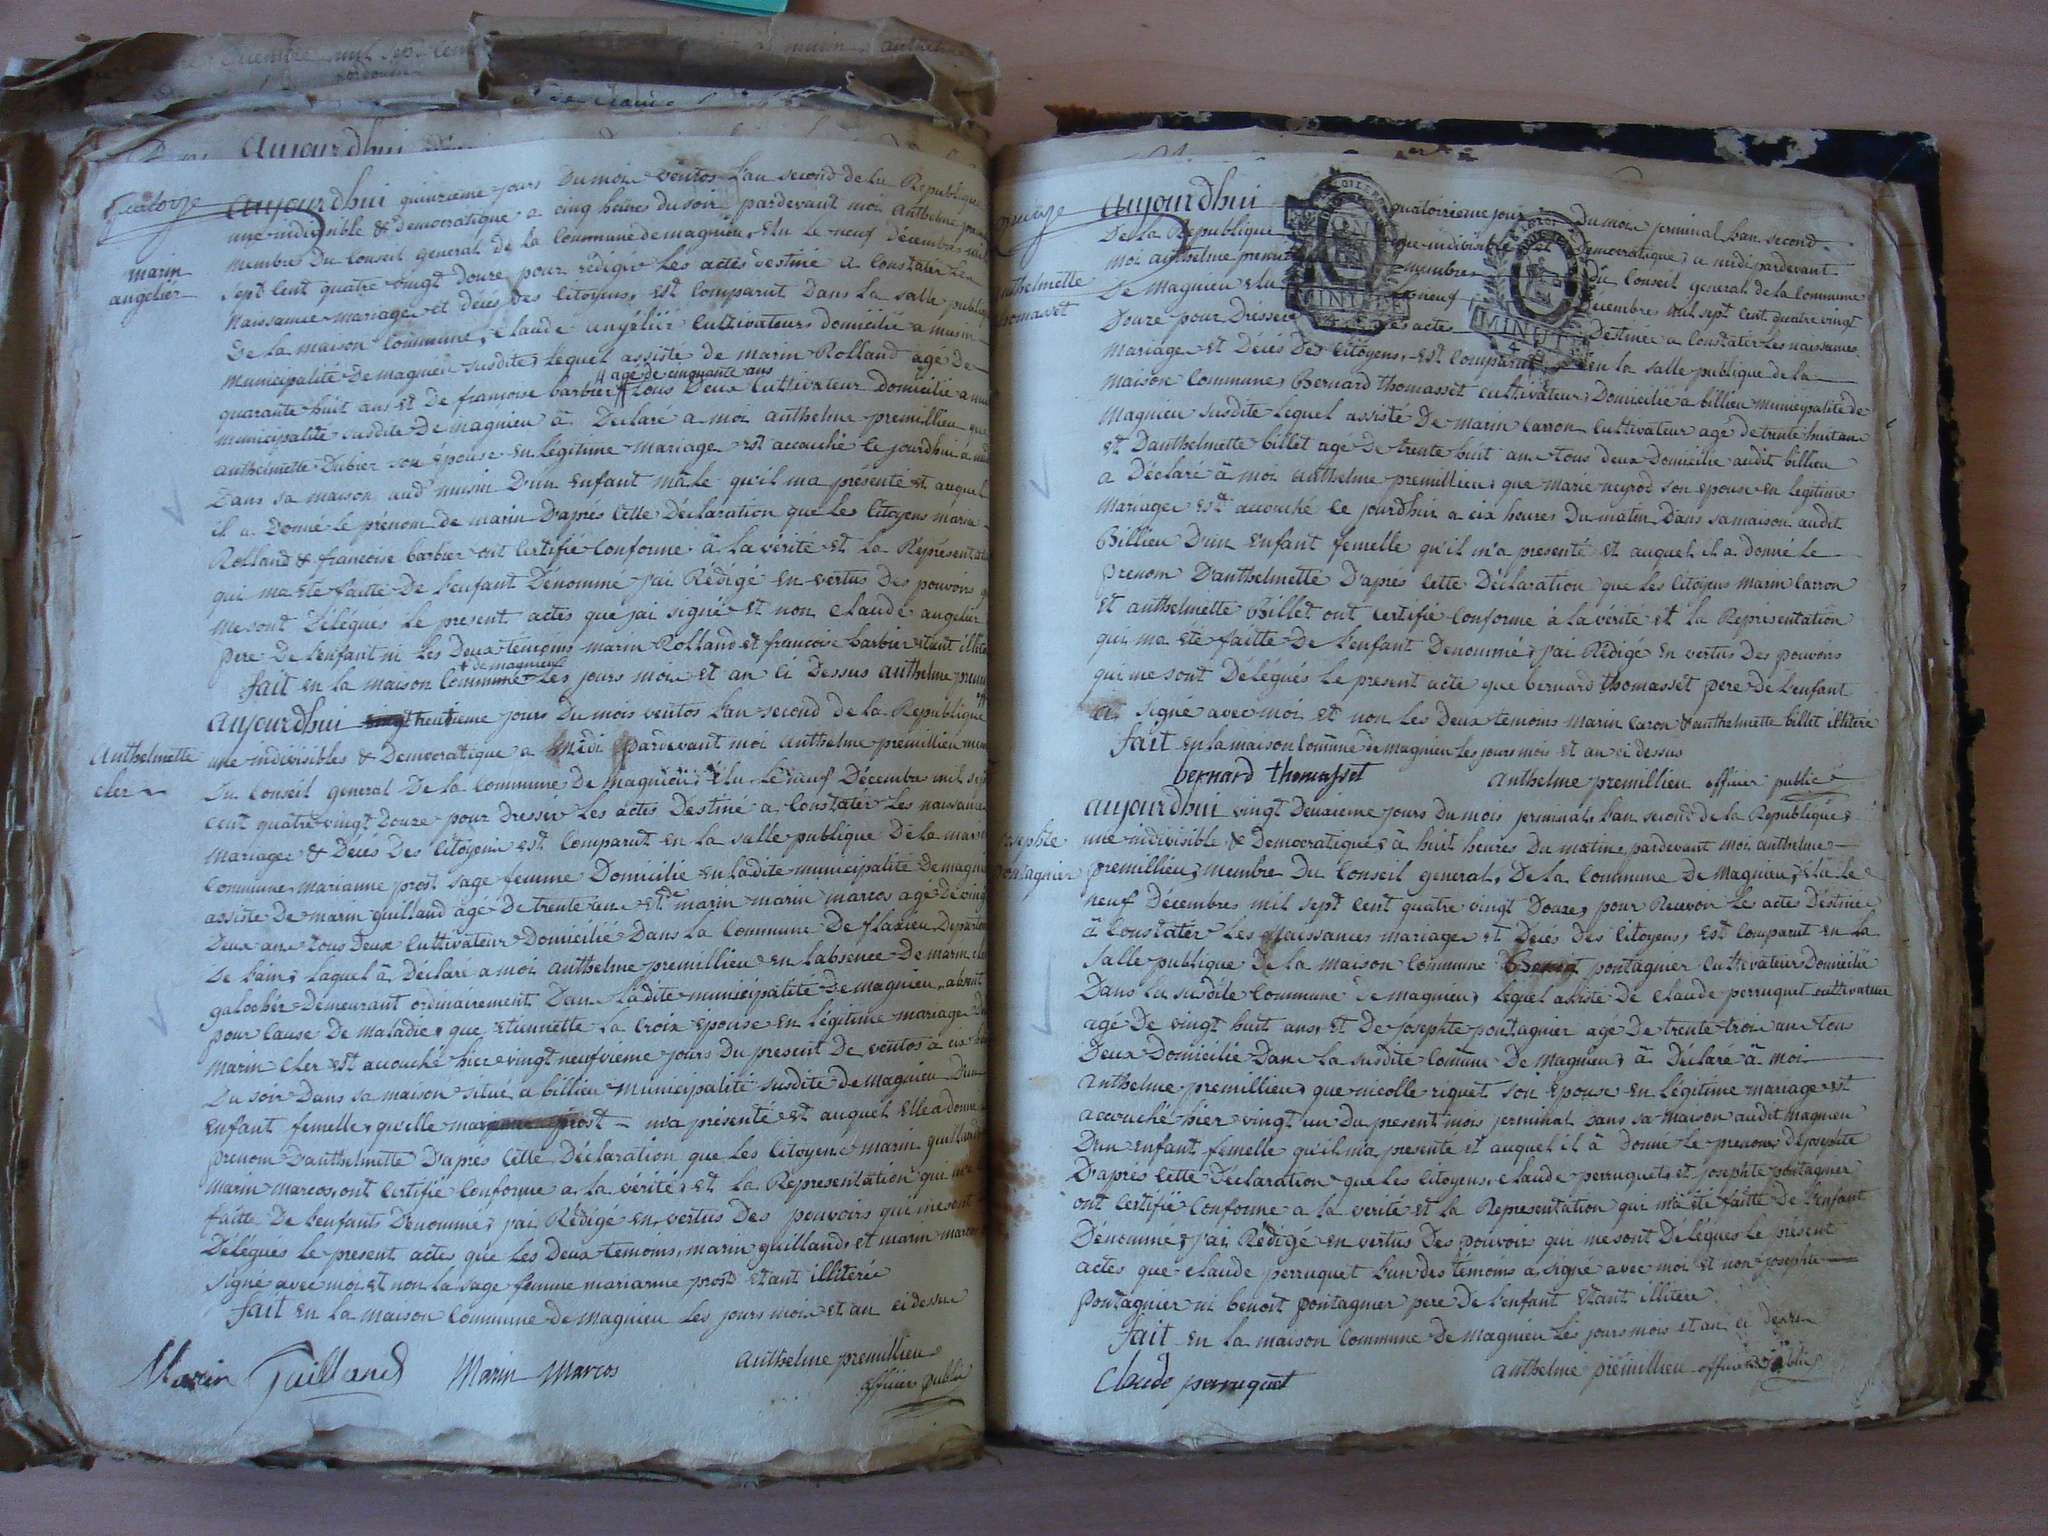 Quatorze
marin
angelier
aujourdhui quinzieme jours Du mois ventos Lan second de la Republique
une indivisible & democratique a cinq heures du soir pardevant moi Anthelme
membre Du Conseil general de la Commune de magnieu, Elu le neuf décembre mil
sept cent quatre vingt douze pour rédiger Les actes destiné a Constater les
Naissance mariage et décés des Citoyens, est Comparut Dans La salle publique
De la maison Commune, Claude angéliér Cultivateurs domicilié a musin
municipalité De magnieu susdite, lequel assisté de marin Rolland agé de
agé de cinquante ans
quarante huit ans et De françoise barbier tous Deux Cultivateur Domicilié a
municipalité susdite De magnieu â Déclaré a moi anthelme premillieu que
anthelmette Dubier son épouse en légitime mariage est accouché ce jourdhui à
Dans sa maison aud musin D'un enfant mâle qu'il ma présenté et auquel
il a Donné le prénom de marin D'aprés Cette Déclaration que les Citoyens marin
Rolland & francoise barbier ont Certifié Conforme â la vérité et la Représentation
qui ma été faitte De l'enfant Dénomme j'ai Rédigé en vertus Des pouvoirs
me sont Délégués le present actes que jai signé et non Claude angelier
pere De l'enfant ni les Deux temoins marin Rolland et francoise barbier etant
de magnieu
fait en la maison Commune Les jours mois et an ci Dessus anthelme
aujourdhui trentieme jours Du mois ventos Lan second de la Republique
Anthelmette
cler
une indivisibles & Democratique a midi pardevant moi anthelme premillieu
Du Conseil general De la Commune de magnieu, élu le neuf Décembre mil
cent quatre vingt Douze pour dresser les actes Destiné a Constatér Les naissance
mariage & Décés Des Citoyens est Comparut en la salle publique De la
Commune marianne prost sage femme Domicilié en ladite municipalité De
assiste De marin guilland agé De trente ans et de marin marin marcos agé De
Deux ans tous Deux Cultivateur Domicilié Dans La Commune De flaxieu
De lain, laquel â Déclaré a moi anthelme premillieu en l'absence De marin
galocher Demeurant ordinairement Dans Ladite municipalité De magnieu, absent
pour Cause De maladie, que Etiennette la Croix épouse en légitime mariage
marin Cler est accouché hier vingt neufvieme jours Du present De ventos a six
Du soir Dans sa maison situé a billieu municipalité susdite De magnieu D'un
Enfant femelle, quelle m'a présenté et auquel Elle a donné
prenom D'anthelmette D'apres Cette Déclaration que les Citoyens marin guilland
marin marcos, ont Certifié Conforme a la vérité, et la Représentation qui
faitte De l'enfant Dénomme, j'ai Rédigé en vertus Des pouvoirs qui me sont
Délégués le present actes que les Deux temoins marin guilland et marin marcos
signé avec moi et non la sage femme marianne prost etant illiterée
fait en la maison Commune De magnieu les jours mois et an ci dessus
Marin Guilland Marin Marcos anthelme premillieu
officier public
quinze
anthelmette
thomasset
aujourdhui quatorzieme jour Du mois jerminal Lan second
De la Republique une indivisible et Democratique, a midi pardevant
moi anthelme premillieu membre Du Conseil general de la Commune
De magnieu elu le neuf Décembre mil sept cent quatre vingt
Douze pour Dresser les actes Destinée a Constatér Les naissances
mariage et Décés Des Citoyens, est Comparut en la salle publique de la
maison Commune, Bernard thomasset cultivateur Domicilié a billieu municipalité de
magnieu susdite lequel assiste De marin Carron Cultivateur agé de trente huit ans
et D'anthelmette billet age De trente huit ans tous deux Domicilié audit billieu
a Déclaré â moi anthelme premillieu, que marie neyrod son epouse en legitime
mariage est accouché ce jourdhui a six heures Du matin Dans sa maison audit
Billieu D'un enfant femelle qu'il m'a presenté et auquel il a donné le
prenom D'anthelmette D'aprés Cette Déclaration que les Citoyens marin Carron
et anthelmette Billet ont Certifié Conforme à la vérité et la Représentation
qui ma été faitte De l'enfant Denommé, j'ai Rédigé en vertus Des pouvoirs
qui me sont Délégués Le present acte que bernard thomasset pere de l'enfant
a signé avec moi et non les Deux temoins marin Caron & anthelmette billet illitéré
fait en la maison Commune de magnieu les jours mois et an ci dessus
bernard thomasset anthelme premillieu officier public
aujourdhui vingt Deuxieme jours Du mois jerminal, Lan second De la Republique,
josephte
pontagnier
une indivisible & Democratique, â huit heures Du matin, pardevant moi anthelme
premillieu, membre Du Conseil general, De la Commune De magnieu, élu le
neuf Décembres mil sept cent quatre vingt Douze, pour Recevoir les actes Déstiné
â Constatér Les Naissances mariage et Décés Des Citoyens, est Comparut en la
salle publique De la maison Commune Benoit pontagnier Cultivateur Domicilié
Dans la susdite Commune De magnieu, lequel assisté De Claude perruquet cultivateur
agé De vingt huit ans, et De josephte pontagnier agé De trente trois ans tous
Deux Domicilié Dans la susdite Commune De magnieu, â Déclaré â moi
anthelme premillieu, que nicolle riquet son épouse en legitime mariage est
accouché hier vingt un du present mois jerminal dans sa maison audit magnieu
D'un enfant femelle qu'il ma presente et auquel il â donne le prenom de josephte
D'aprés Cette Déclaration que les Citoyens, Claude perruquet, et josephte pontagnier
ont Certifié Conforme a la verité et la Représentation qui ma été faitte De l'enfant
Dénommé, j'ai Rédigé en vertus Des pouvoir qui me sont Délégués le présent
actes que Claude perruquet l'un des témoins a signé avec moi et non josephte
Pontagnier ni benoit pontagnier pere De l'enfant etant illiteré
fait en la maison Commune De magnieu les jours mois et an ci dessus
Claude perruquet anthelme premillieu officier public